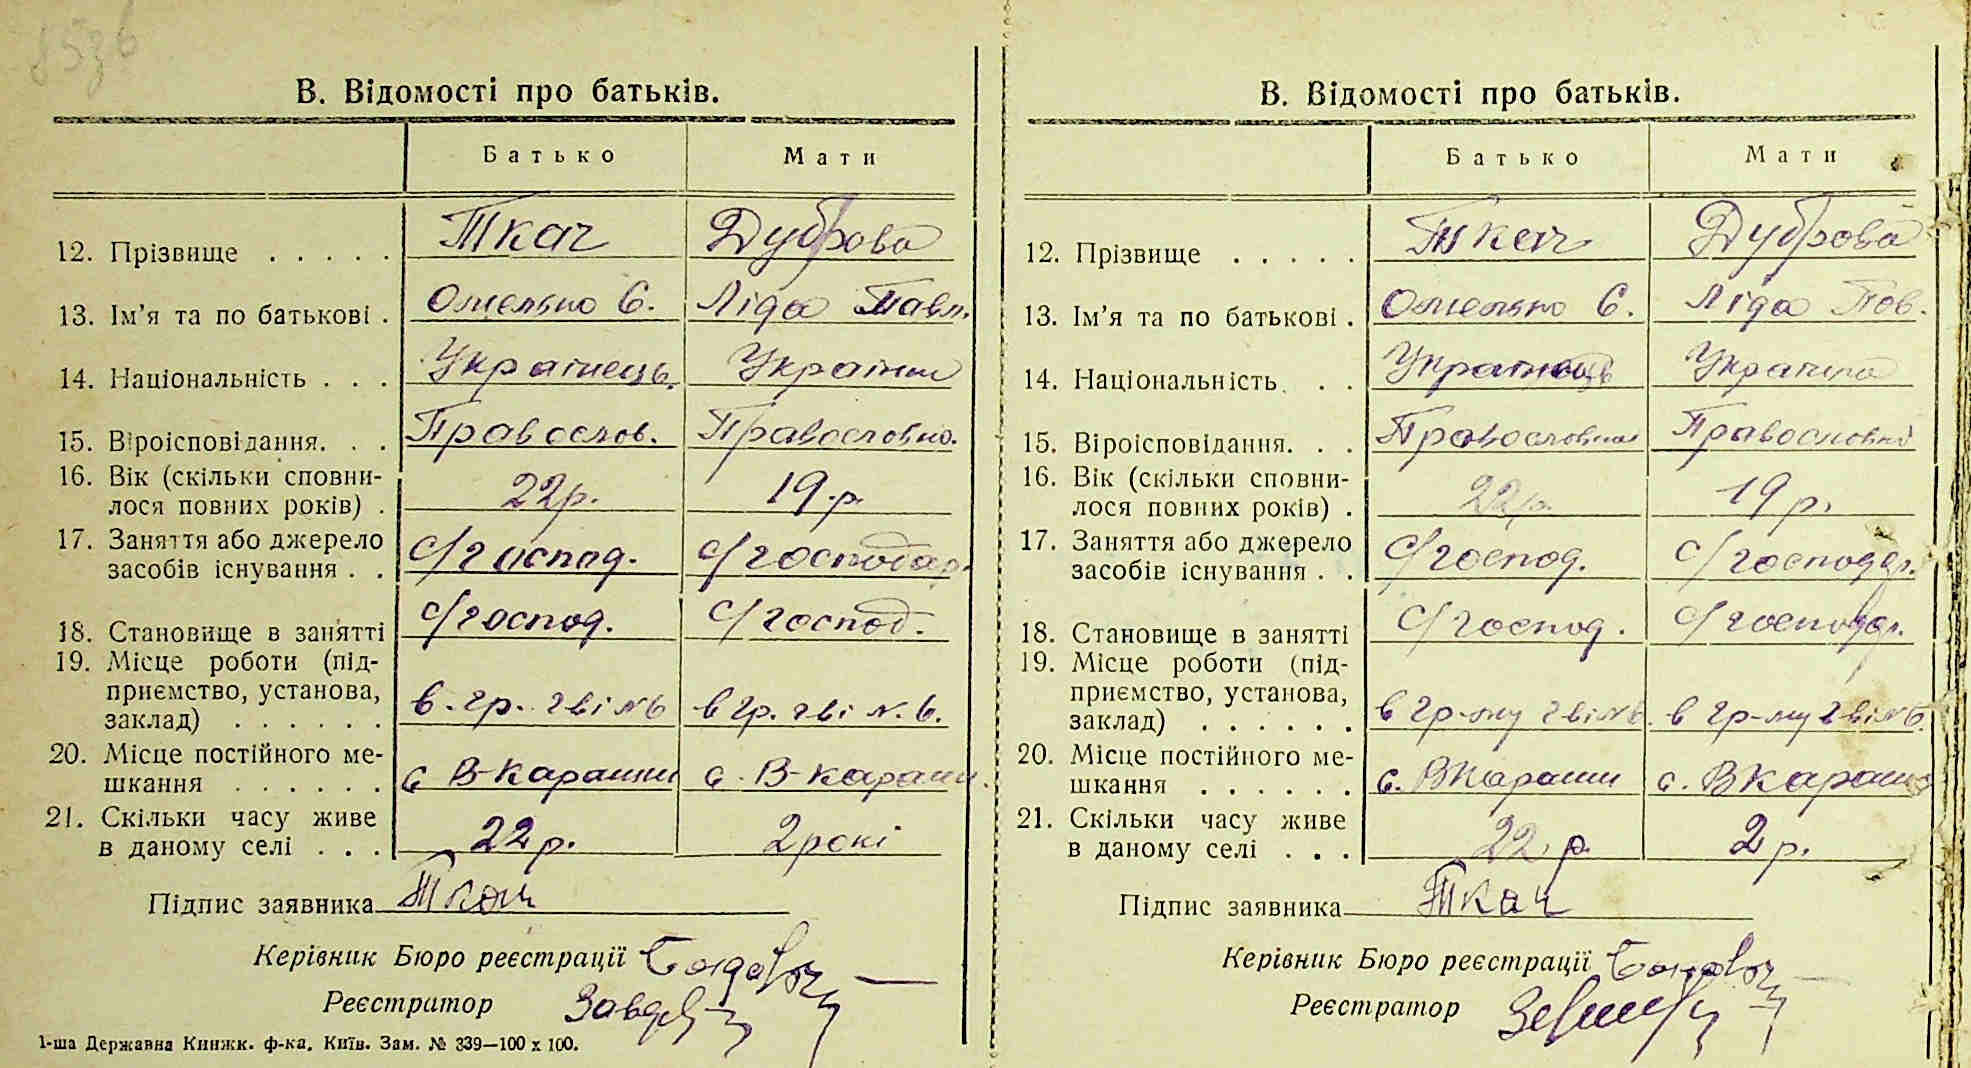 8536
В. Відомості про батьків.
Батько Мати
12. Прізвище . . . . . Ткач Дуброва
13. Ім'я та по батькові . Омелько Є. Ліда Павл.
14. Національність . . . Українець. Українка
15. Віроісповідання. . . Правослов. Православно.
16. Вік (скільки сповни-
лося повних років) . 22р. 19.р.
17. Заняття або джерело
засобів існування . . с/господ. с/господар.
18. Становище в занятті с/господ. с/господ.
19. Місце роботи (під-
приємство, установа,
заклад) . . . . . . в. гр. гві №6 в гр. гві №. 6.
20. Місце постійного ме-
шкання . . . . . . с В-Карашин с. В-Караши.
21. Скільки часу живе
в даному селі . . . 22р. 2 рокі
Підпис заявника Ткач
Керівник Бюро реєстрації
Реєстратор
1-ша Державна Книжк. ф-ка, Київ. Зам. № 339—100 х 100.
В. Відомості про батьків.
Батько Мати
12. Прізвище . . . . . Ткач Дуброва
13. Ім'я та по батькові . Омелько Є. Ліда Пав.
14. Національність . . . Українець Українка
15. Віроісповідання. . . Православная Православна
16. Вік (скільки сповни-
лося повних років) . 22р. 19 р.
17. Заняття або джерело
засобів існування . . с/господ. с/господар.
18. Становище в занятті с/господ. с/господар.
19. Місце роботи (під-
приємство, установа,
заклад) . . . . . . в гр-му гві №6. в гр-му гві №6
20. Місце постійного ме-
шкання . . . . . . с. ВКараши с. ВКараши
21. Скільки часу живе
в даному селі . . . 22 р. 2 р.
Підпис заявника Ткач
Керівник Бюро реєстрації
Реєстратор